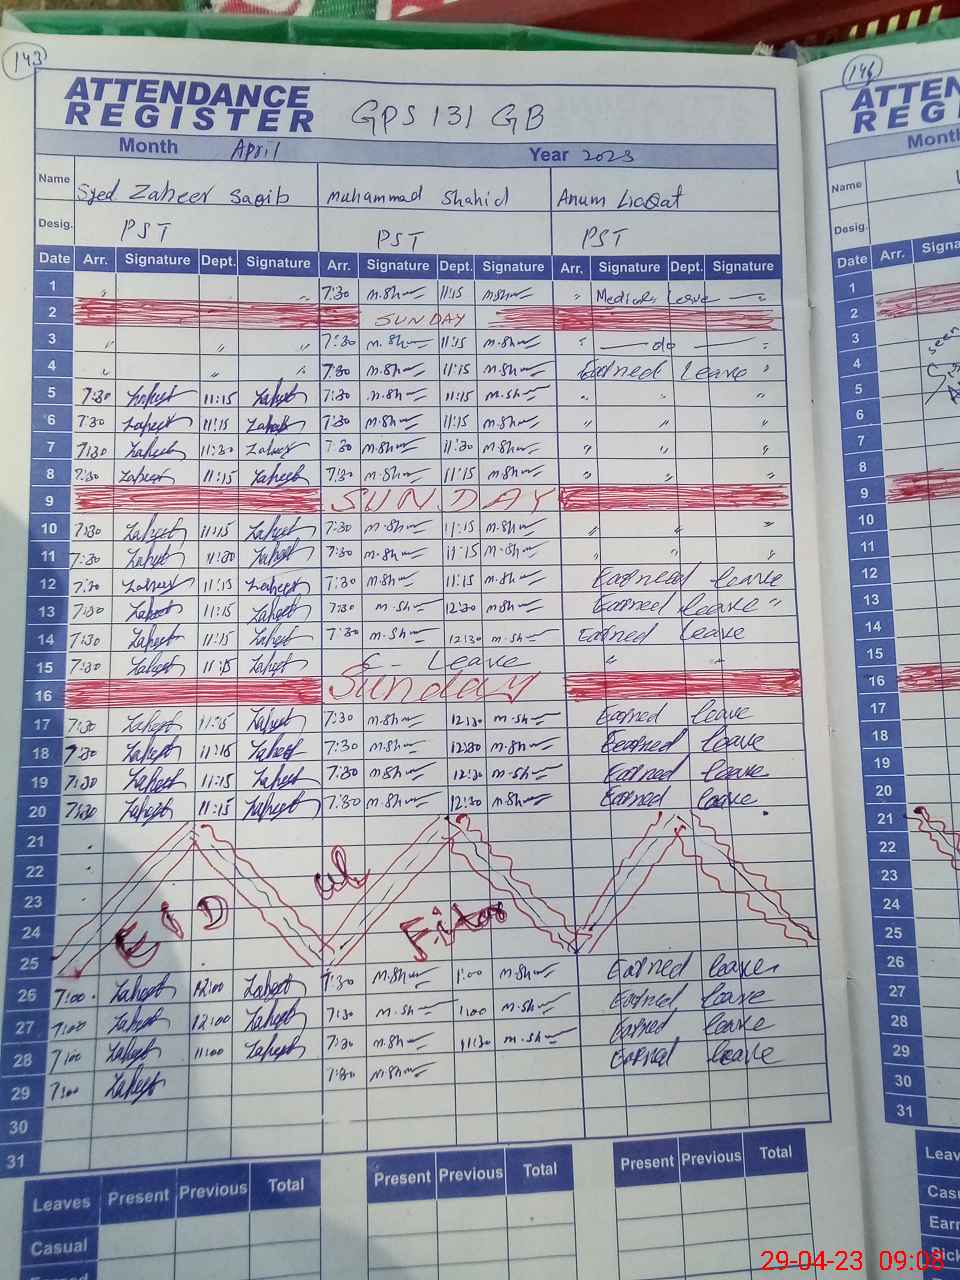 143
ATTENDANCE
REGISTER GPS 131 GB
Month April Year 2023
Name Syed Zaheer Saqib Muhammad Shahid Anum Liaqat
Desig. PST PST PST
Date Arr. Signature Dept. Signature Arr. Signature Dept. Signature Arr. Signature Dept. Signature
1 " " 7:30 m.Sh 11:15 m.Sh " Medical Leave "
2 SUNDAY
3 " " " 7:30 m.Sh 11:15 m.Sh " do "
4 " " " 7:30 m.Sh 11:15 m.Sh Earned leave "
5 7:30 Zaheer 11:15 Zaheer 7:30 m.Sh 11:15 m.Sh " " "
6 7:30 Zaheer 11:15 Zaheer 7:30 m.Sh 11:15 m.Sh " " "
7 7:30 Zaheer 11:30 Zaheer 7:30 m.Sh 11:30 m.Sh " " "
8 7:30 Zaheer 11:15 Zaheer 7:30 m.Sh 11:15 m.Sh " " "
9 SUNDAY
10 7:30 Zaheer 11:15 Zaheer 7:30 m.Sh 11:15 m.Sh " " "
11 7:30 Zaheer 11:30 Zaheer 7:30 m.Sh 11:15 m.Sh " " "
12 7:30 Zaheer 11:15 Zaheer 7:30 m.Sh 11:15 m.Sh Earned leave
13 7:30 Zaheer 11:15 Zaheer 7:30 m.Sh 12:30 m.Sh Earned leave "
14 7:30 Zaheer 11:15 Zaheer 7:30 m.Sh 12:30 m.Sh Earned leave
15 7:30 Zaheer 11:15 Zaheer C - Leave " "
16 Sunday
17 7:30 Zaheer 11:15 Zaheer 7:30 m.Sh 12:30 m.Sh Earned leave
18 7:30 Zaheer 11:15 Zaheer 7:30 m.Sh 12:30 m.Sh Earned leave
19 7:30 Zaheer 11:15 Zaheer 7:30 m.Sh 12:30 m.Sh Earned leave
20 7:30 Zaheer 11:15 Zaheer 7:30 m.Sh 12:30 m.Sh Earned leave
21
22
23 EID ul Fitar
24
25
26 7:00 Zaheer 12:00 Zaheer 7:30 m.Sh 1:00 m.Sh Earned leave
27 7:00 Zaheer 12:00 Zaheer 7:30 m.Sh 1:00 m.Sh Earned leave
28 7:00 Zaheer 11:00 Zaheer 7:30 m.Sh 11:30 m.Sh Earned leave
29 7:00 Zaheer 7:30 m.Sh Earned leave
30
31
Leaves Present Previous Total Present Previous Total Present Previous Total
Casual
146
ATTEN
REG
Month
Name
Desig.
Date Arr. Signa
1
2
3 seen
4
5
6
7
8
9
10
11
12
13
14
15
16
17
18
19
20
21
22
23
24
25
26
27
28
29
30
31
Leav
Casu
Earn
Sick
29-04-23 09:08